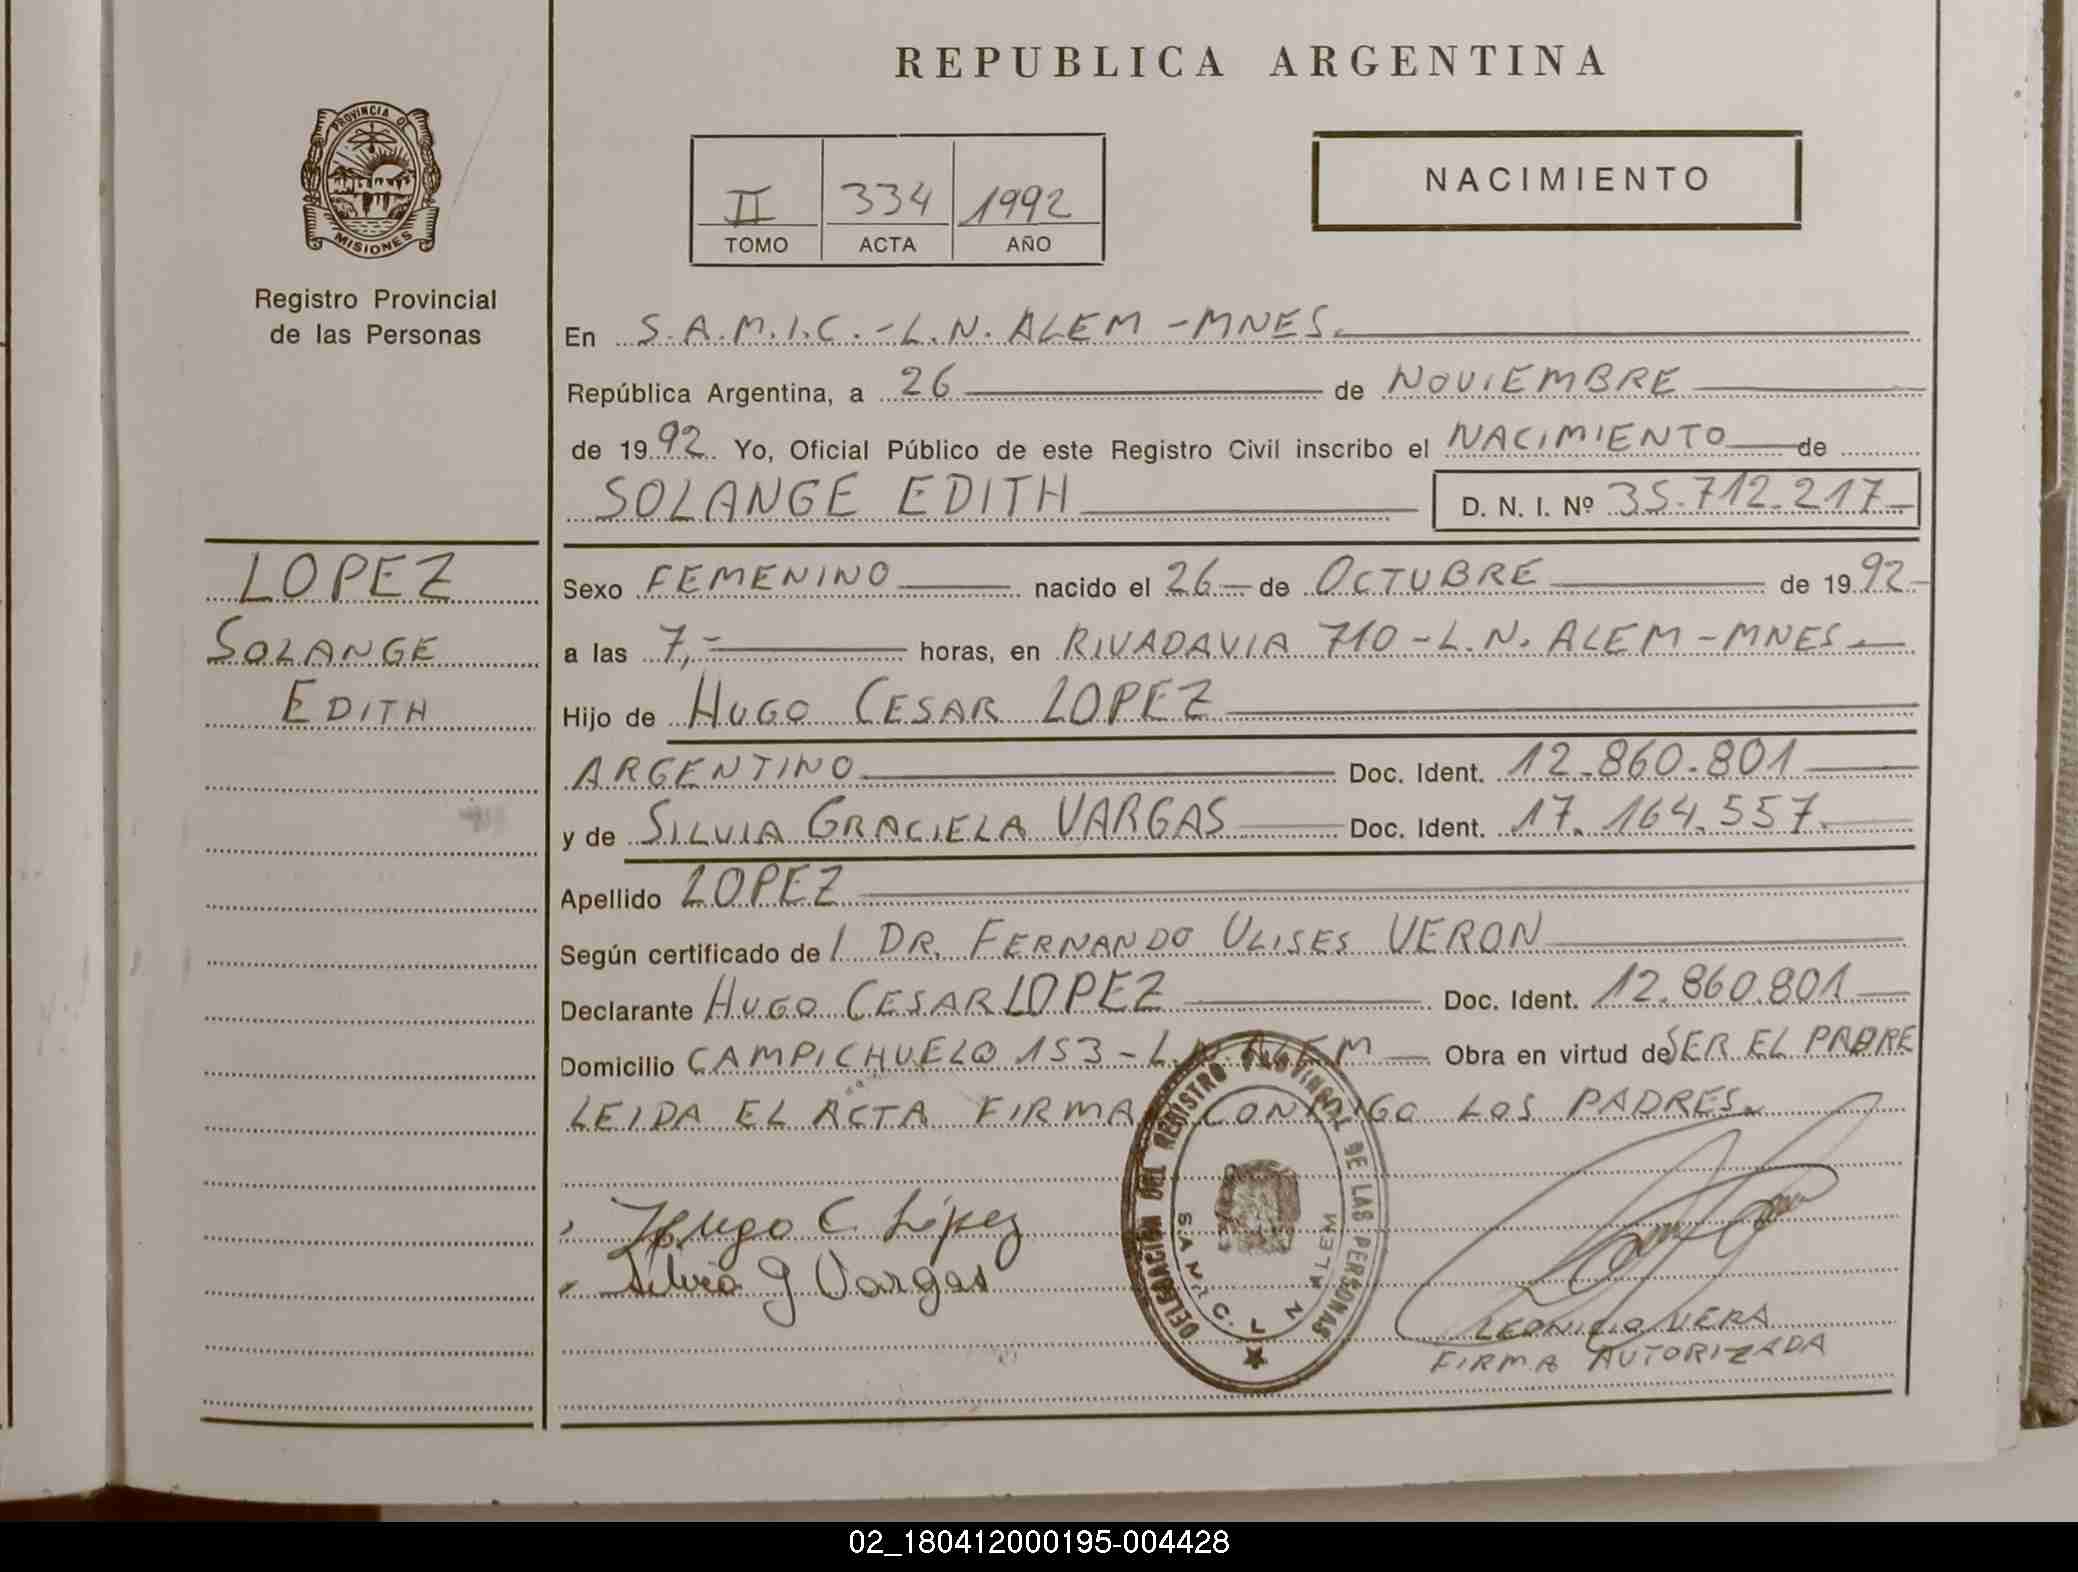 REPUBLICA ARGENTINA
PROVINCIA DE
MISIONES
Registro Provincial
de las Personas
II 334 1992
TOMO ACTA AÑO
NACIMIENTO
En S.A.M.I.C.-L.N. ALEM-MNES.
República Argentina, a 26 de NOVIEMBRE
de 1992. Yo, Oficial Público de este Registro Civil inscribo el NACIMIENTO de
SOLANGE EDITH D. N. I. Nº 35.712.217
LOPEZ
SOLANGE
EDITH
Sexo FEMENINO nacido el 26 de OCTUBRE de 1992
a las 7,- horas, en RIVADAVIA 710-L.N. ALEM-MNES
Hijo de HUGO CESAR LOPEZ
ARGENTINO Doc. Ident. 12.860.801
y de SILVIA GRACIELA VARGAS Doc. Ident. 17.164.557
Apellido LOPEZ
Según certificado de l DR. FERNANDO ULISES VERON
Declarante HUGO CESAR LOPEZ Doc. Ident. 12.860.801
Domicilio CAMPICHUELO 153-L.N. ALEM Obra en virtud de SER EL PADRE
LEIDA EL ACTA FIRMA CONMIGO LOS PADRES.
Hugo C. López
Silvia G Vargas
DELEGACIÓN DEL REGISTRO PROVINCIAL DE LAS PERSONAS
S.A.M.I.C. L. N. ALEM
LEONICIO VERA
FIRMA AUTORIZADA
02_180412000195-004428